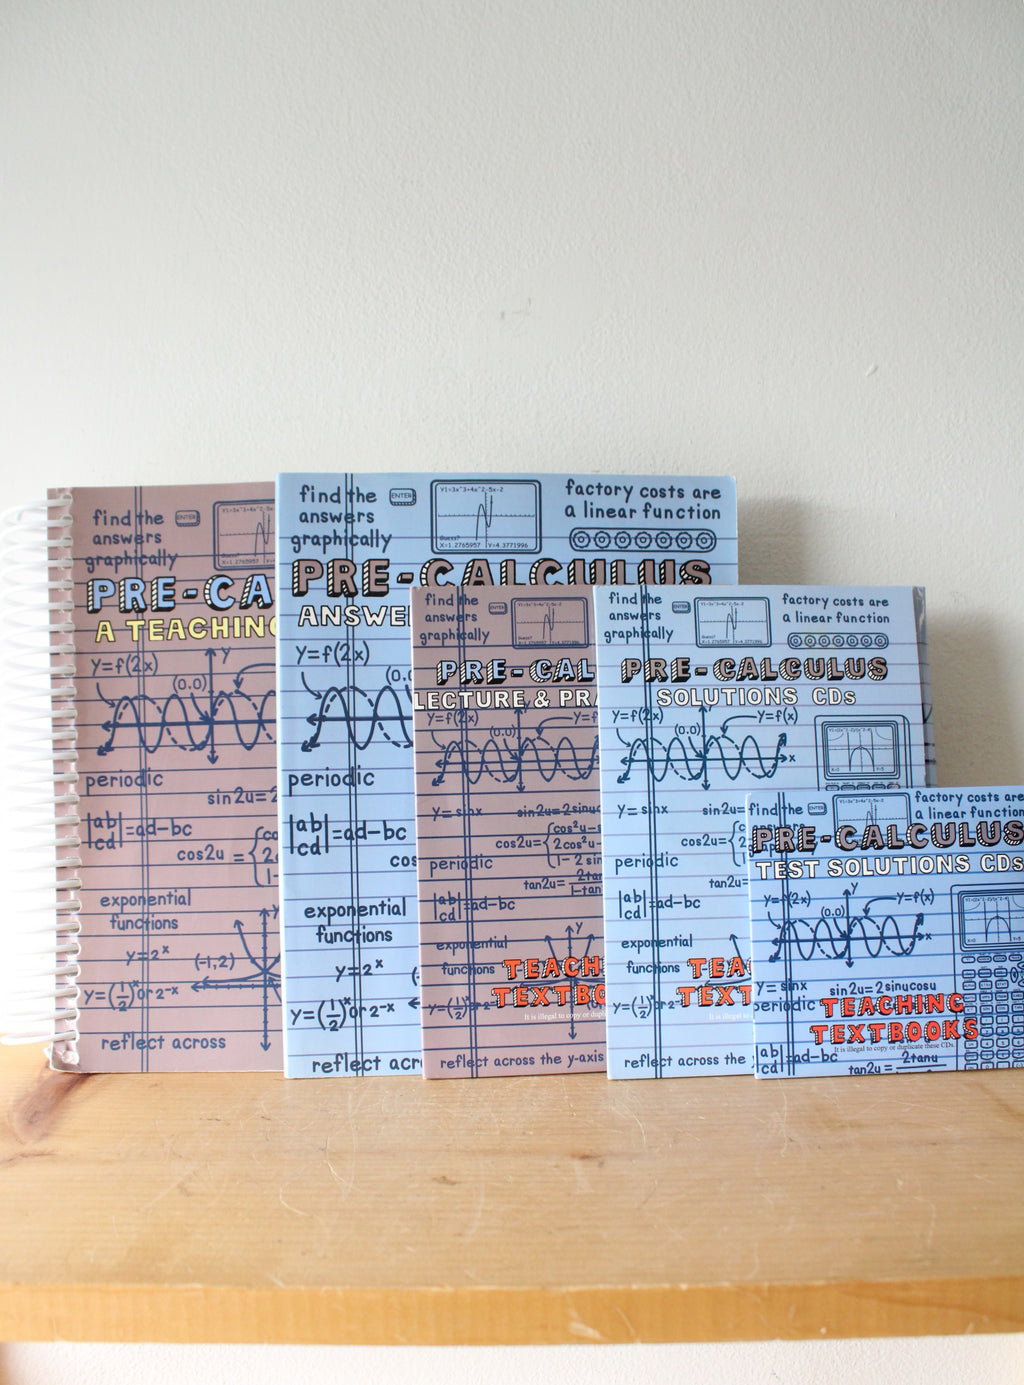 find the
answers
graphically
ENTER
PRE-CA
A TEACHING
y=f(2x)
y
(0.0)
periodic
sin2u=2
|ab|
|cd|=ad-bc
cos2u =
exponential
functions
y=2ˣ
(-1,2)
y=(1/2)ˣor 2⁻ˣ
reflect across
find the
answers
graphically
ENTER
Y1=3x^3+4x^2-5x-2
Guess?
X=1.2765957 Y=4.3771996
factory costs are
a linear function
PRE-CALCULUS
ANSWE
y=f(2x)
(0.
periodic
|ab|
|cd|=ad-bc
cos
exponential
functions
y=2ˣ
y=(1/2)ˣor 2⁻ˣ
reflect acr
find the
answers
graphically
ENTER
PRE-CAL
LECTURE & PRA
y=f(2x)
(0.0)
y=f
y= sinx
sin2u=2sinu
cos2u=
cos²u-s
2cos²u-
1- 2 sin
periodic
tan2u= 2tan
1-tan
|ab|
|cd|=ad-bc
exponential
functions
y
TEACH
TEXTBO
y=(1/2)ˣor 2⁻ˣ
It is illegal to copy or dupl
reflect across the y-axis
find the
answers
graphically
ENTER
factory costs are
a linear function
PRE-CALCULUS
SOLUTIONS CDs
y=f(2x)
(0.0)
y=f(x)
x
y= sinx
sin2u=
cos2u=
periodic
tan2u=
|ab|
|cd|=ad-bc
exponential
functions
TEA
TEXT
y=(1/2)ˣor 2
It is illegal to
reflect across the
find the
ENTER
factory costs are
a linear function
PRE-CALCULUS
TEST SOLUTIONS CDs
y=f(2x)
y
(0.0)
y=f(x)
x
y= sinx
sin2u=2sinucosu
periodic
TEACHING
TEXTBOOKS
It is illegal to copy or duplicate these CDs.
|ab|
|cd|=ad-bc
tan2u= 2tanu